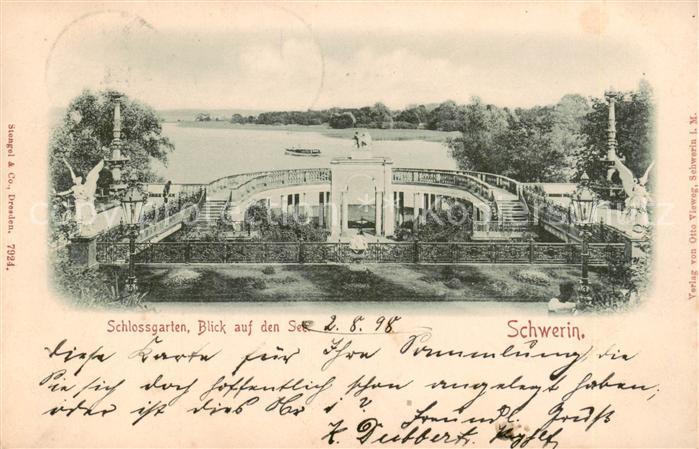 Stengel & Co., Dresden. 7924.
Verlag von Otto Vieweg, Schwerin i. M.
Schlossgarten, Blick auf den See.
2. 8. 98
Schwerin.
diese Karte für Ihre Sammlung, die
Sie sich doch hoffentlich schon angelegt haben,
oder ist dies Nr 1? Freundl. Gruß